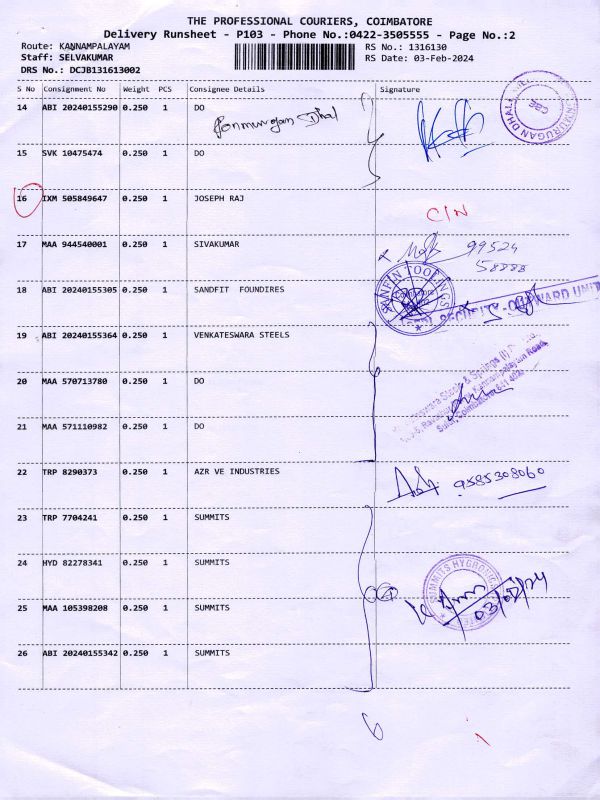 THE PROFESSIONAL COURIERS, COIMBATORE
Delivery Runsheet - P103 - Phone No.:0422-3505555 - Page No.:2
Route: KANNAMPALAYAM RS No.: 1316130
Staff: SELVAKUMAR RS Date: 03-Feb-2024
DRS No.: DCJB131613002
S No Consignment No Weight PCS Consignee Details Signature
14 ABI 20240155290 0.250 1 DO
15 SVK 10475474 0.250 1 DO
16 IXM 505849647 0.250 1 JOSEPH RAJ
C/N
17 MAA 944540001 0.250 1 SIVAKUMAR
99524
58888
18 ABI 20240155305 0.250 1 SANDFIT FOUNDIRES
TOOLINGS
SECURITY - OUTWARD UNIT
19 ABI 20240155364 0.250 1 VENKATESWARA STEELS
Steels & Springs (I)
Kannampalayam Road,
20 MAA 570713780 0.250 1 DO
21 MAA 571110982 0.250 1 DO
22 TRP 8290373 0.250 1 AZR VE INDUSTRIES
9585308060
23 TRP 7704241 0.250 1 SUMMITS
24 HYD 82278341 0.250 1 SUMMITS
SUMMITS HYGRONICS
03/02/24
25 MAA 105398208 0.250 1 SUMMITS
26 ABI 20240155342 0.250 1 SUMMITS